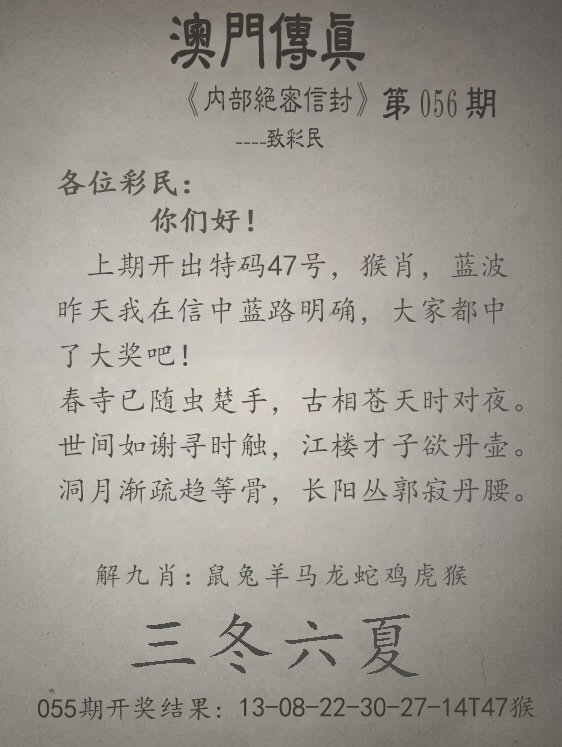 澳門傳眞
《内部絕密信封》第056期
----致彩民
各位彩民：
你们好！
上期开出特码47号，猴肖，蓝波
昨天我在信中蓝路明确，大家都中
了大奖吧！
春寺已随虫楚手，古相苍天时对夜。
世间如谢寻时触，江楼才子欲丹壶。
洞月渐疏趋等骨，长阳丛郭寂丹腰。
解九肖：鼠兔羊马龙蛇鸡虎猴
三冬六夏
055期开奖结果：13-08-22-30-27-14T47猴